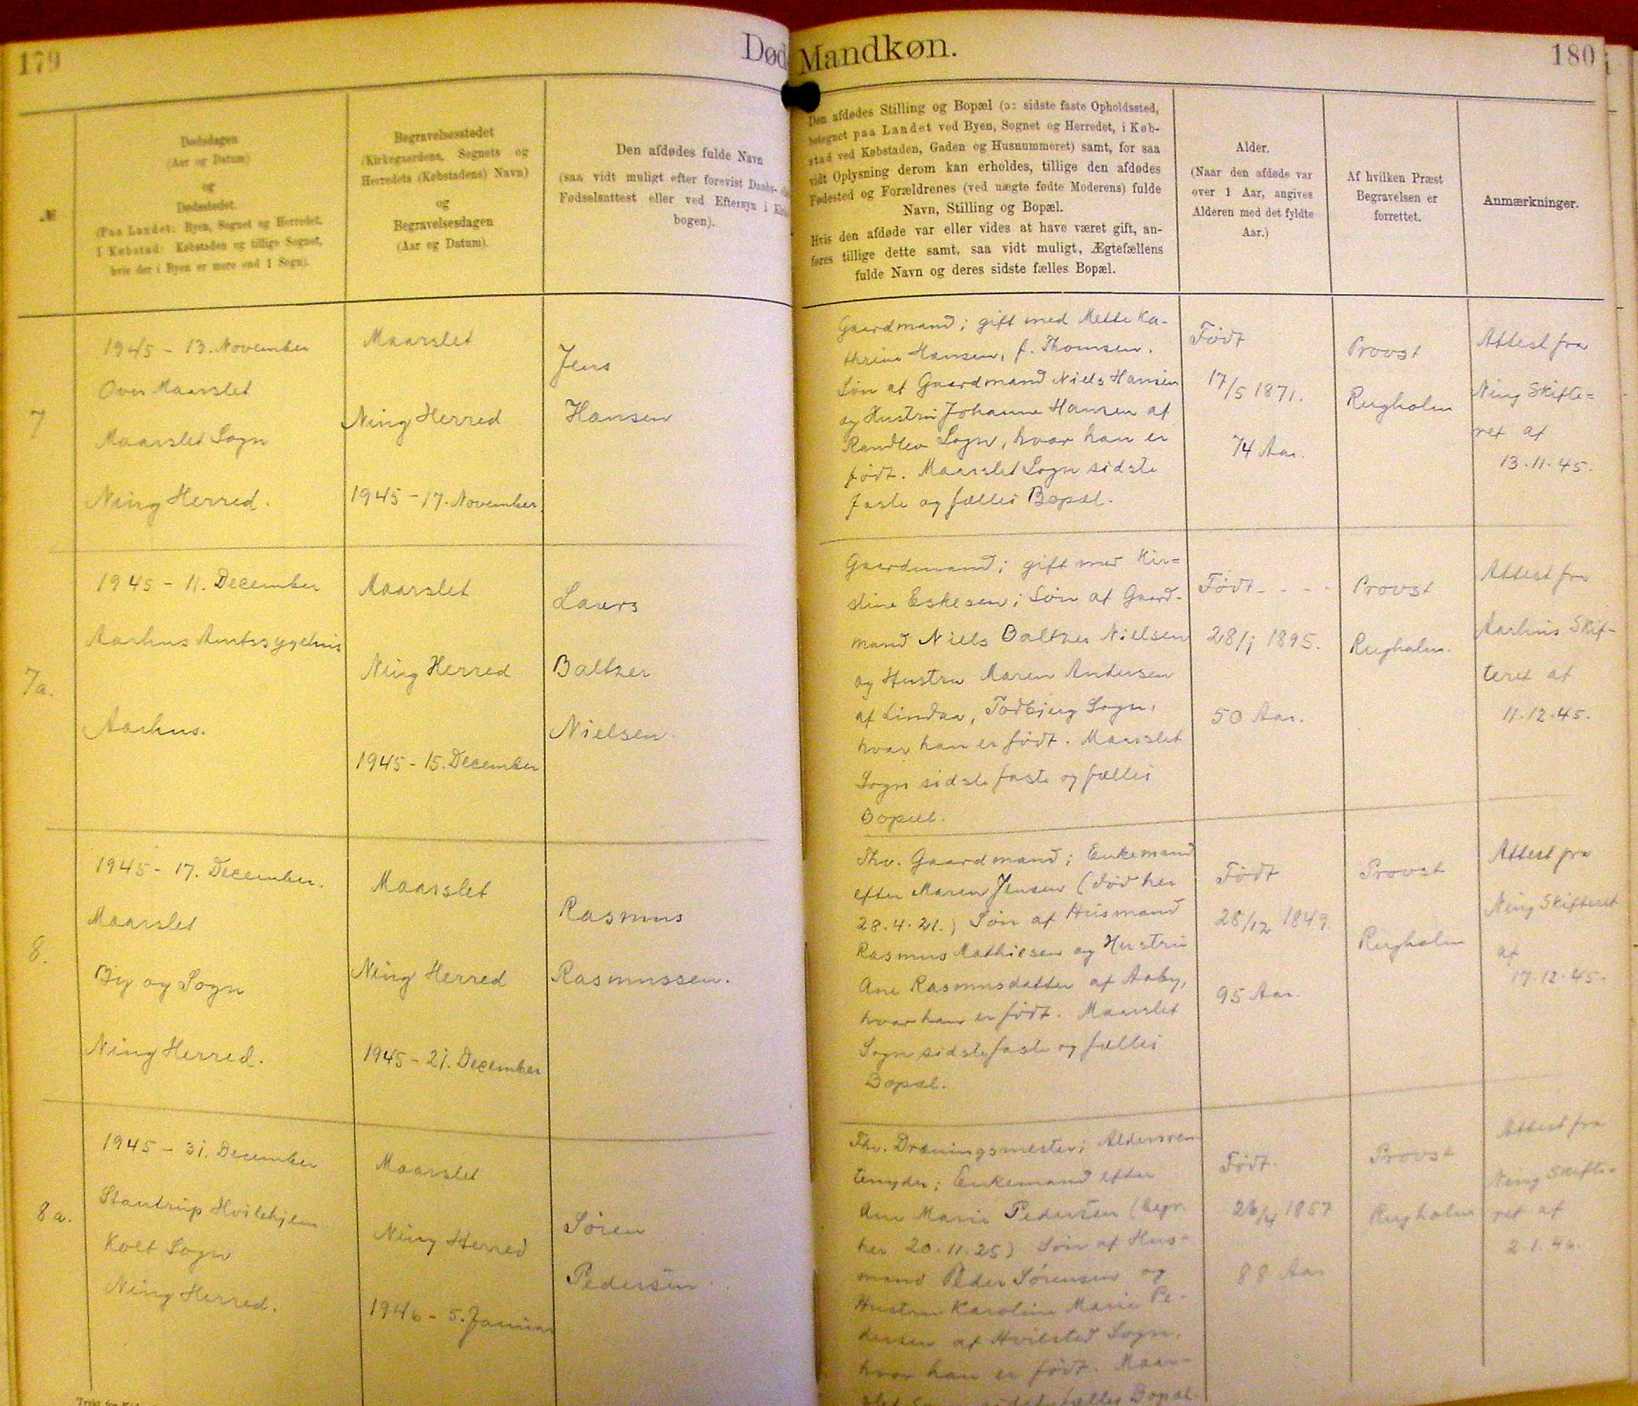 179
Død
Mandkøn.
180
№
Dødsdagen
(Aar og Datum)
og
Dødsstedet.
(Paa Landet: Byen, Sognet og Herredet,
I Købstad: Købstaden og tillige Sognet,
hvis der i Byen er mere end 1 Sogn).
Begravelsesstedet
(Kirkegaardens, Sognets og
Herredets (Købstadens) Navn)
og
Begravelsesdagen
(Aar og Datum).
Den afdødes fulde Navn
(saa vidt muligt efter forevist Daabs-
Fødselsattest eller ved Eftersyn i
bogen).
Den afdødes Stilling og Bopæl (ɔ: sidste faste Opholdssted,
betegnet paa Landet ved Byen, Sognet og Herredet, i Køb-
stad ved Købstaden, Gaden og Husnummeret) samt, for saa
vidt Oplysning derom kan erholdes, tillige den afdødes
Fødested og Forældrenes (ved uægte fødte Moderens) fulde
Navn, Stilling og Bopæl.
Hvis den afdøde var eller vides at have været gift, an-
føres tillige dette samt, saa vidt muligt, Ægtefællens
fulde Navn og deres sidste fælles Bopæl.
Alder.
(Naar den afdøde var
over 1 Aar, angives
Alderen med det fyldte
Aar.)
Af hvilken Præst
Begravelsen er
forrettet.
Anmærkninger.
7
1945 - 13. November
Over Maarslet
Maarslet Sogn
Ning Herred.
Maarslet
Ning Herred
1945 - 17. November.
Jens
Hansen
Gaardmand; gift med Mette Ka-
thrine Hansen, f. Thomsen.
Søn af Gaardmand Niels Hansen
og Hustru Johanne Hansen af
Randlev Sogn, hvor han er
født. Maarslet Sogn sidste
faste og fælles Bopæl.
Født
17/5 1871.
74 Aar.
Provst
Rugholm
Attest fra
Ning Skifte=
ret af
13.11.45.
7a.
1945 - 11. December
Aarhus Amtssygehus
Aarhus.
Maarslet
Ning Herred
1945 - 15. December
Laurs
Baltzer
Nielsen.
Gaardmand; gift med Kir=
stine Eskesen; Søn af Gaard-
mand Niels Baltzer Nielsen
og Hustru Maren Andersen
af Lindaa, Todbjerg Sogn,
hvor han er født. Maarslet
Sogn sidste faste og fælles
Bopæl.
Født - - - -
28/1 1895.
50 Aar.
Provst
Rugholm.
Attest fra
Aarhus Skif-
teret af
11.12.45.
8.
1945 - 17. December.
Maarslet
By og Sogn
Ning Herred.
Maarslet
Ning Herred
1945 - 21. December
Rasmus
Rasmussen.
Fhv. Gaardmand; Enkemand
efter Maren Jensen (død her
28.4.21.) Søn af Husmand
Rasmus Mathiesen og Hustru
Ane Rasmusdatter af Aaby,
hvor han er født. Maarslet
Sogn sidste faste og fælles
Bopæl.
Født
28/12 1849.
95 Aar.
Provst
Rugholm
Attest fra
Ning Skifteret
af
17.12.45.
8a.
1945 - 31. December
Stautrup Hvilehjem
Kolt Sogn
Ning Herred.
Maarslet
Ning Herred
1946 - 5. Januar
Søren
Pedersen
Fhv. Dræningsmester; Aldersren
tenyder; Enkemand efter
Ane Marie Pedersen (begr.
her 20.11.25) Søn af Hus-
mand Peder Sørensen og
Hustru Karoline Marie Pe-
dersen af Hvilsted Sogn,
hvor han er født. Maar-
slet Sogn sidste fælles Bopæl.
Født.
26/4 1857
88 Aar
Provst
Rugholm
Attest fra
Ning Skifte-
ret af
2.1.46.